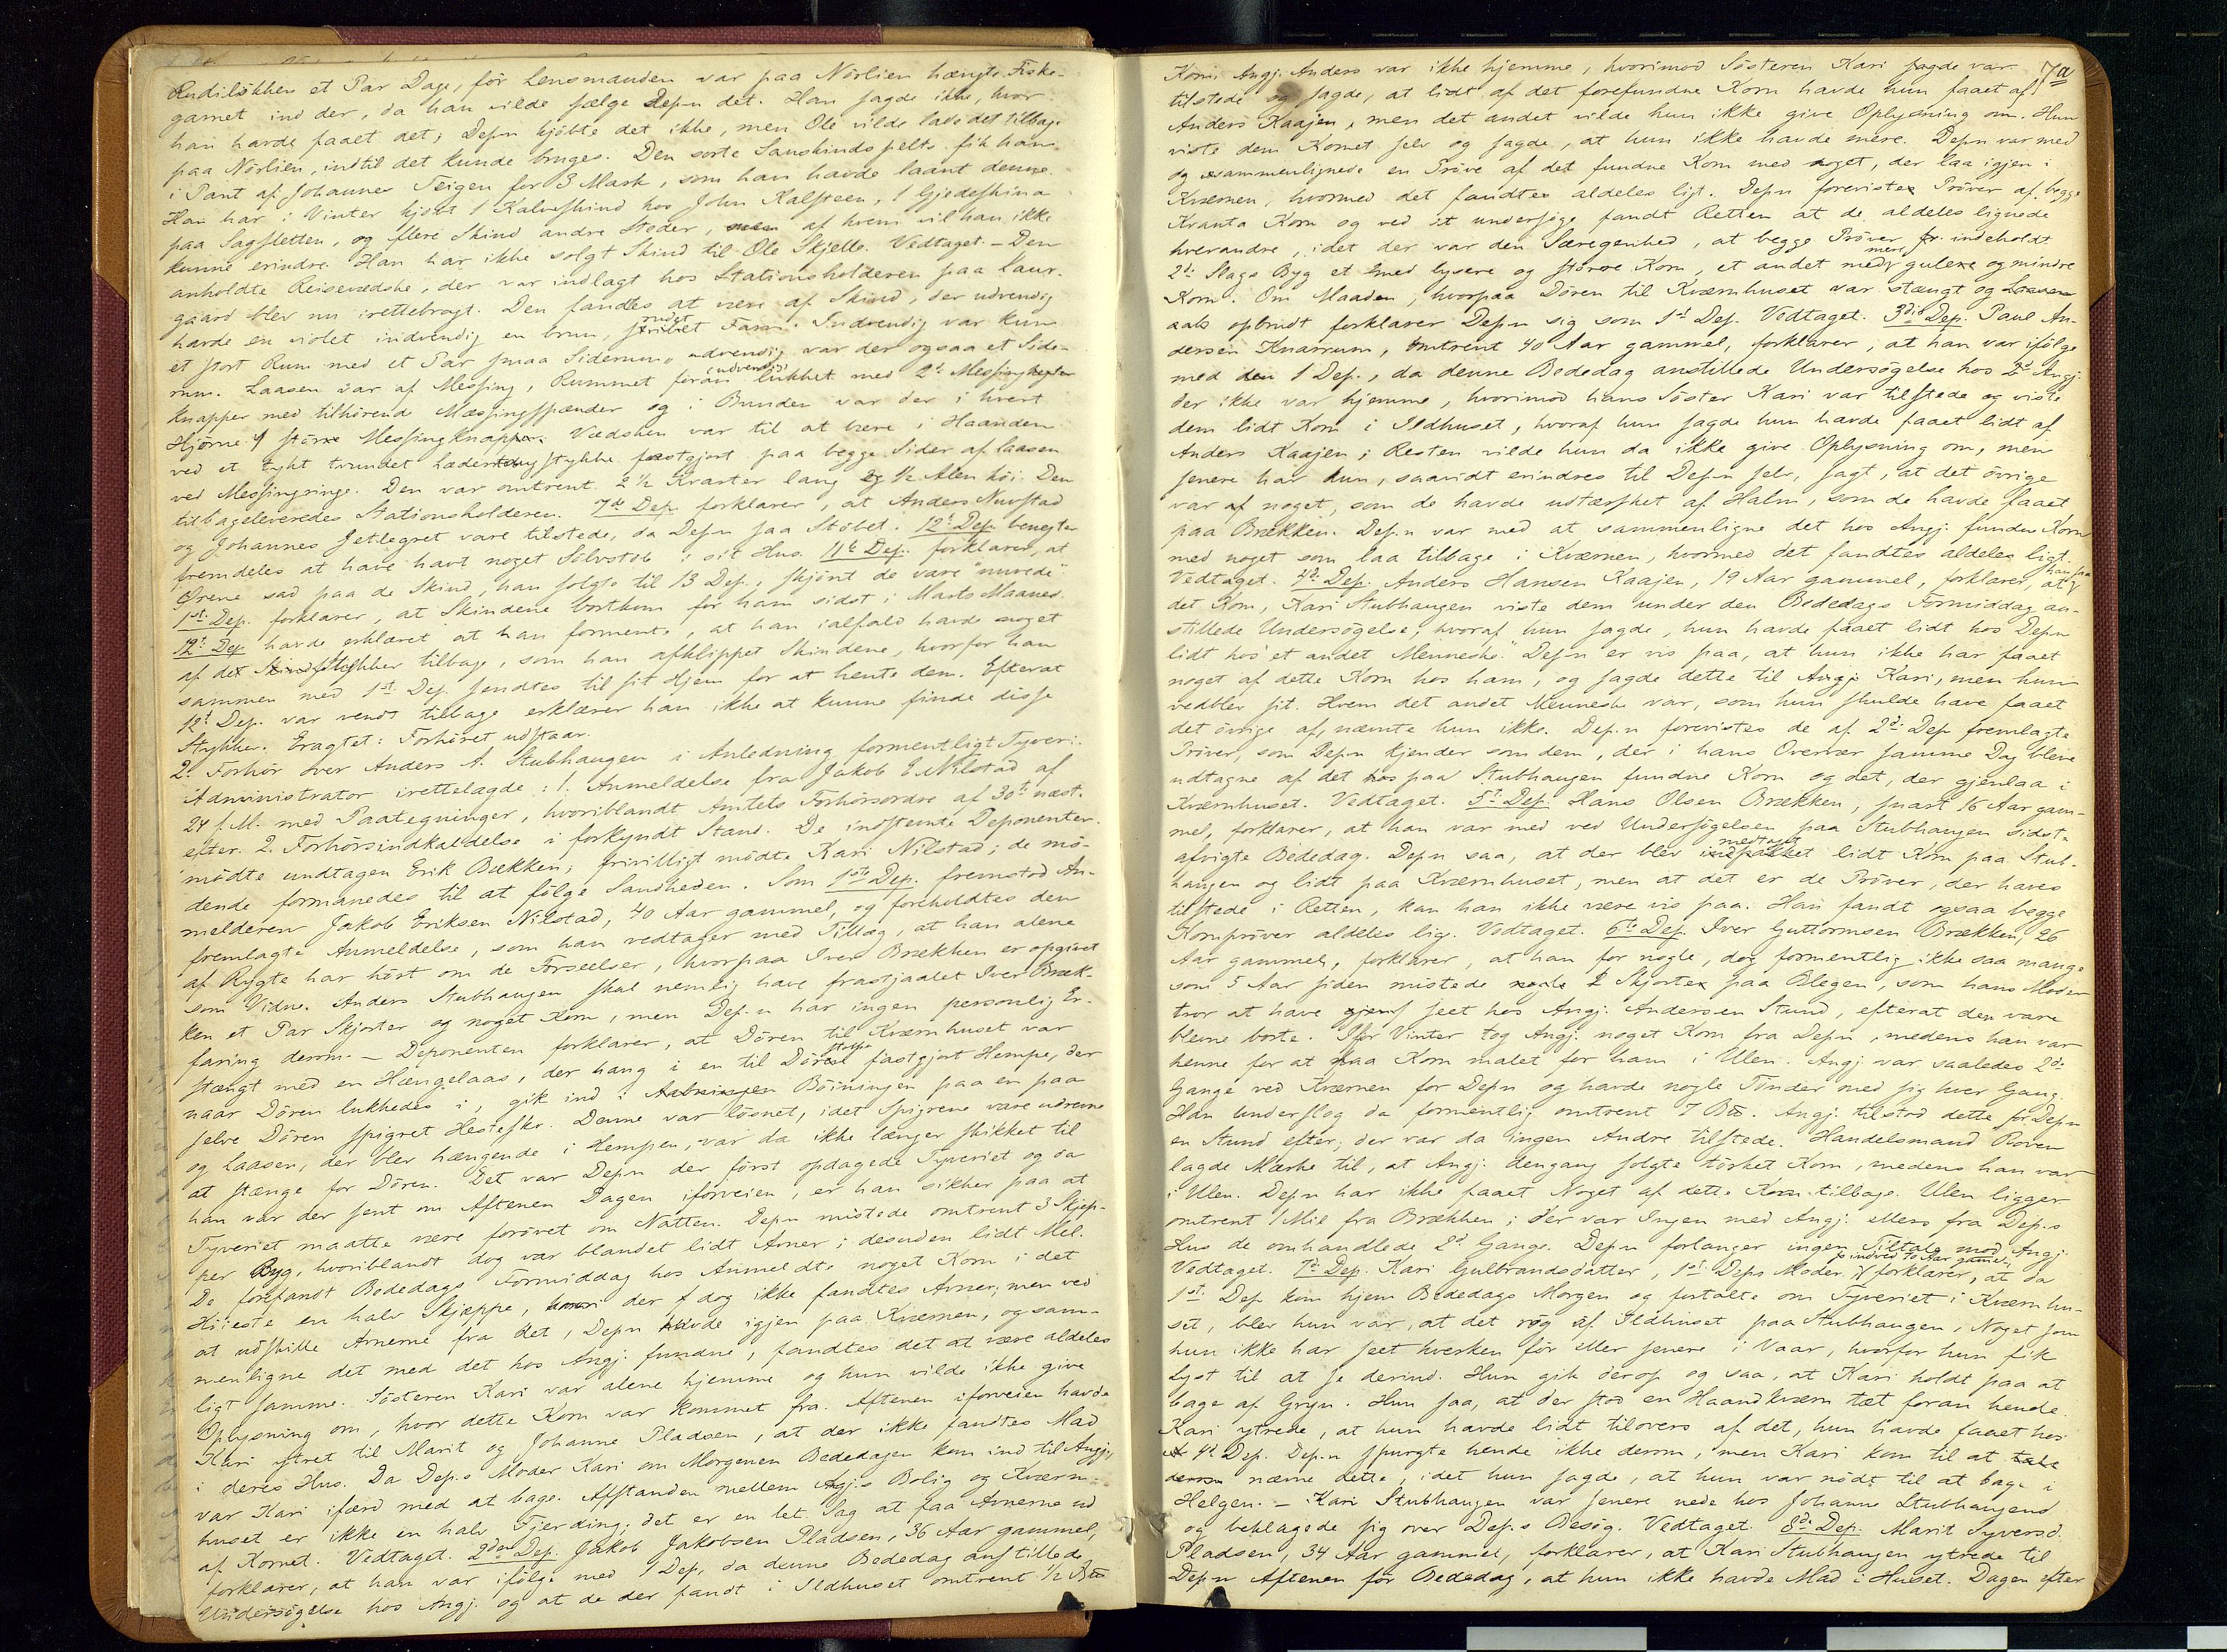 Rudiløkken et Par Dage, før Lensmanden var paa Nørlien hængte Fiske-
garnet ind der, da han vilde sælge Dep.n det. Han sagde ikke, hvor
han havde faaet det; Dep.n kjøbte det ikke, men Ole vilde lade det tilbage
paa Nørlien, indtil det kunde bruges. Den sorte Saueskinds pelts fik han
i Pant af Johannes Teigen for 3 Mark, som han havde laant denne.
Han har i Vinter kjøbt 1 Kalveskind hos John Kalsteen, 1 Gjedeskind
paa Sagsletten, og flere Skind andre Steder, men af hvem vil han ikke
kunne erindre. Han har ikke solgt Skind til Ole Skjelle. Vedtaget. – Den
anholdte Reisevædske, der var indlagt hos Stationsholderen paa Laur-
gaard blev nu irettebragt. Den fandtes at være af Skind, der udvendig
havde en violet indvendig en brun, rudet stribet Farve. Indvendig var kun
et stort Rum med et Par smaa Siderum, udvendig var der ogsaa et Side-
rum. Laasen var af Messing, Rummet foran (udvendig) lukket med 2de Messing
Knapper med tilhørende Messingspænder og i Bunden var der i hvert
Hjørne 1 større Messingknapper. Vædsken var til at bære i Haanden
ved et tykt tvundet Læderstykke fastgjort paa begge Sider af Laasen
ved Messingringe. Den var omtrent 2 1/2 Kvarter lang og 1/2 Alen høi. Den
tilbageleveredes Stationsholderen. 7de Dep. forklarer, at Anders Nuvstad
og Johannes Jetlegret vare tilstede, da Dep.n saa Støbet. 12t Dep. benegter
fremdeles at have havt noget Sølvstøb i sit Hus. 11te Dep. forklarer, at
Ørene sad paa de Skind, han solgte til 13 Dep., skjønt de vare "nuvede"
1ste Dep. forklarer, at Skindene bortkom for ham sidst i Marts Maaned.
12t Dep. havde erklæret at han formente, at han ialfald havde noget
af de Skindstykker tilbage, som han afklippet Skindene, hvorfor han
sammen med 1st Dep. sendtes til sit Hjem for at hente dem. Efterat
12t Dep. var vendt tilbage erklærer han ikke at kunne finde disse
Stykker. Eragtet: Forhøret udstaar.
2. Forhør over Anders A. Stubhaugen i Anledning formentligt Tyveri.
Administrator irettelagde: 1. Anmeldelse fra Jakob E. Nilstad af
24 f. M. med Paategninger, hvoriblandt Amtets Forhørsordre af 30te næst-
efter. 2. Forhørsindkaldelse i forkyndt Stand. De indstevnte Deponenter
mødte undtagen Erik Bækken; frivilligt mødte Kari Nilstad; de mø-
dende formanedes til at følge Sandheden. Som 1ste Dep. fremstod An-
melderen Jakob Eriksen Nilstad, 40 Aar gammel, og foreholdtes den
fremlagte Anmeldelse, som han vedtager med Tillæg, at han alene
af Rygte har hørt om de Forseelser, hvorpaa Iver Brækken er opgivet
som Vidne. Anders Stubhaugen skal nemlig have frastjaalet Iver Bræk-
ken et Par Skjorter og noget Korn, men Dep.n har ingen personlig Er-
faring derom. – Deponenten forklarer, at Døren til Kværnhuset var
stængt med en Hængelaas, der hang i en til Dørstolpe fastgjort Hempe, der
naar Døren lukkedes i, gik ind i Bøiningen paa en paa
selve Døren spigret Hestesko. Denne var løsnet, idet Spigrene vare udrevne
og Laasen, der blev hængende i Hempen, var da ikke længer skikket til
at stænge for Døren. Det var Dep.n der først opdagede Tyveriet og da
han var der sent om Aftenen Dagen iforveien, er han sikker paa at
Tyveriet maatte være forøvet om Natten. Dep.n mistede omtrent 3 Skjep-
per Byg, hvoriblandt dog var blandet lidt Avner; desuden lidt Mel.
De forefandt Bededags Formiddag hos Anmeldte noget Korn i det
Høieste en halv Skjæppe, hvori der dog ikke fandtes Avner; men ved
at udskille Avnerne fra det, Dep.n havde igjen paa Kværnen, og sam-
menligne det med det hos Angj. fundne, fandtes det at være aldeles
ligt samme. Søsteren Kari var alene hjemme og hun vilde ikke give
Oplysning om, hvor dette Korn var kommet fra. Aftenen iforveien havde
Kari ytret til Marit og Johanne Pladsen, at der ikke fandtes Mad
i deres Hus. Da Dep.s Moder Kari om Morgenen Bededagen kom ind til Angj.,
var Kari ifærd med at bage. Afstanden mellem Angj.s Bolig og Kværn-
huset er ikke en halv Fjerding; det er en let Sag at faa Avnerne ud
af Kornet. Vedtaget. 2den Dep. Jakob Jakobsen Pladsen, 36 Aar gammel,
forklarer, at han var ifølge med 1 Dep., da denne Bededag anstillede
Undersøgelse hos Angj. og at de der fandt i Ildhuset omtrent 1/2 Btt
7a
Korn. Angj. Anders var ikke hjemme, hvorimod Søsteren Kari sagde var
tilstede og sagde, at lidt af det forefundne Korn havde hun faaet af
Anders Kaajen, men det andet vilde hun ikke give Oplysning om. Hun
viste dem Kornet selv og sagde, at hun ikke havde mere. Dep.n var med
og sammenlignede en Prøve af det fundne Korn med noget, der laa igjen i
Kværnen, hvormed det fandtes aldeles ligt. Dep.n forevistes Prøver af begge
Kvanta Korn og ved at undersøge fandt Retten at de aldeles lignede
hverandre, idet der var den Særegenhed, at begge Prøver indeholdt
2de Slags Byg et med lysere og større Korn, et andet med mere gulere og mindre
Korn. Om Maaden, hvorpaa Døren til Kværnhuset var stængt og Laasen
opbrudt forklarer Dep.n sig som 1st Dep. Vedtaget. 3die Dep. Paul An-
dersen Knarrum, omtrent 40 Aar gammel, forklarer, at han var ifølge
med den 1 Dep., da denne Bededag anstillede Undersøgelse hos Angj.
der ikke var hjemme, hvorimod hans Søster Kari var tilstede og viste
dem lidt Korn i Ildhuset, hvoraf hun sagde hun havde faaet lidt af
Anders Kaajen; Resten vilde hun da ikke give Oplysning om, men
senere har hun, saavidt erindres til Dep.n selv, sagt, at det øvrige
var af noget, som de havde udtærsket af Halm, som de havde faaet
paa Brækken. Dep.n var med at sammenligne det hos Angj. fundne Korn
med noget som laa tilbage i Kværnen, hvormed det fandtes aldeles ligt.
Vedtaget. 4de Dep. Anders Hansen Kaajen, 19 Aar gammel, forklarer, at han saa
det Korn, Kari Stubhaugen viste dem under den Bededags Formiddag an-
stillede Undersøgelse, hvoraf hun sagde, hun havde faaet lidt hos Dep.n
lidt hos "et andet Menneske." Dep.n er vis paa, at hun ikke har faaet
noget af dette Korn hos ham, og sagde dette til Angj. Kari, men hun
vedblev sit. Hvem det andet Menneske var, som hun skulde have faaet
det øvrige af, nævnte hun ikke. Dep.n forevistes de af 2d Dep. fremlagte
Prøver, som Dep.n kjender som dem, der i hans Overvær samme Dag bleve
udtagne af det hos paa Stubhaugen fundne Korn og det, der gjenlaa i
Kværnhuset. Vedtaget. 5te Dep. Hans Olsen Brækken, snart 16 Aar gam-
mel, forklarer, at han var med ved Undersøgelsen paa Stubhaugen sidst-
afvigte Bededag. Dep.n saa, at der blev medtaget indpakket lidt Korn paa Stub-
haugen og lidt paa Kværnhuset, men at det er de Prøver, der haves
tilstede i Retten, kan han ikke være vis paa. Han fandt ogsaa begge
Kornprøver aldeles lig. Vedtaget. 6te Dep. Iver Guttormsen Brækken, 26
Aar gammel, forklarer, at han for nogle, dog formentlig ikke saa mange
som 5 Aar siden mistede nogle 2 Skjorter paa Blegen, som hans Moder
tror at have seet hos Angj. Andersen Stund, efterat den vare
blevne borte. Ifjor Vinter tog Angj. noget Korn fra Dep.n, medens han var
henne for at faa Korn malet for ham i Ulen. Angj. var saaledes 2de
Gange ved Kværnen for Dep.n og havde nogle Tønder med sig hver Gang.
Han underslog da formentlig omtrent 7 Btt. Angj. tilstod dette for Dep.n
en Stund efter, der var da ingen Andre tilstede. Handelsmand Roven
lagde Mærke til, at Angj. dengang solgte tørket Korn, medens han var
i Ulen. Dep.n har ikke faaet Noget af dette Korn tilbage. Ulen ligger
omtrent 1 Mil fra Brækken; der var Ingen med Angj. ellers fra Dep.s
Hus de omhandlede 2d Gange. Dep.n forlanger ingen Tiltale mod Angj.
Vedtaget. 7de Dep. Kari Gulbrandsdatter, 1st Deps Moder, indved 70 Aar gammel, forklarer, at da
1st Dep. kom hjem Bededags Morgen og fortalte om Tyveriet i Kværnhu-
set, blev hun var, at det røg af Ildhuset paa Stubhaugen, Noget som
hun ikke har seet hverken før eller senere i Vaar, hvorfor hun fik
Lyst til at se derind. Hun gik derop og saa, at Kari holdt paa at
bage af Gryn. Hun saa, at der stod en Haandkværn tæt foran hende.
Kari ytrede, at hun havde lidt tilovers af det, hun havde faaet hos
4de Dep. Dep.n spurgte hende ikke derom, men Kari kom til at tale
derom nævne dette, idet hun sagde, at hun var nødt til at bage i
Helgen. – Kari Stubhaugen var senere nede hos Johanne Stubhaugend
og beklagede sig over Dep.s Besøg. Vedtaget. 8de Dep. Marit Syversd.
Pladsen, 34 Aar gammel, forklarer, at Kari Stubhaugen ytrede til
Dep.n Aftenen før Bededag, at hun ikke havde Mad i Huset. Dagen efter